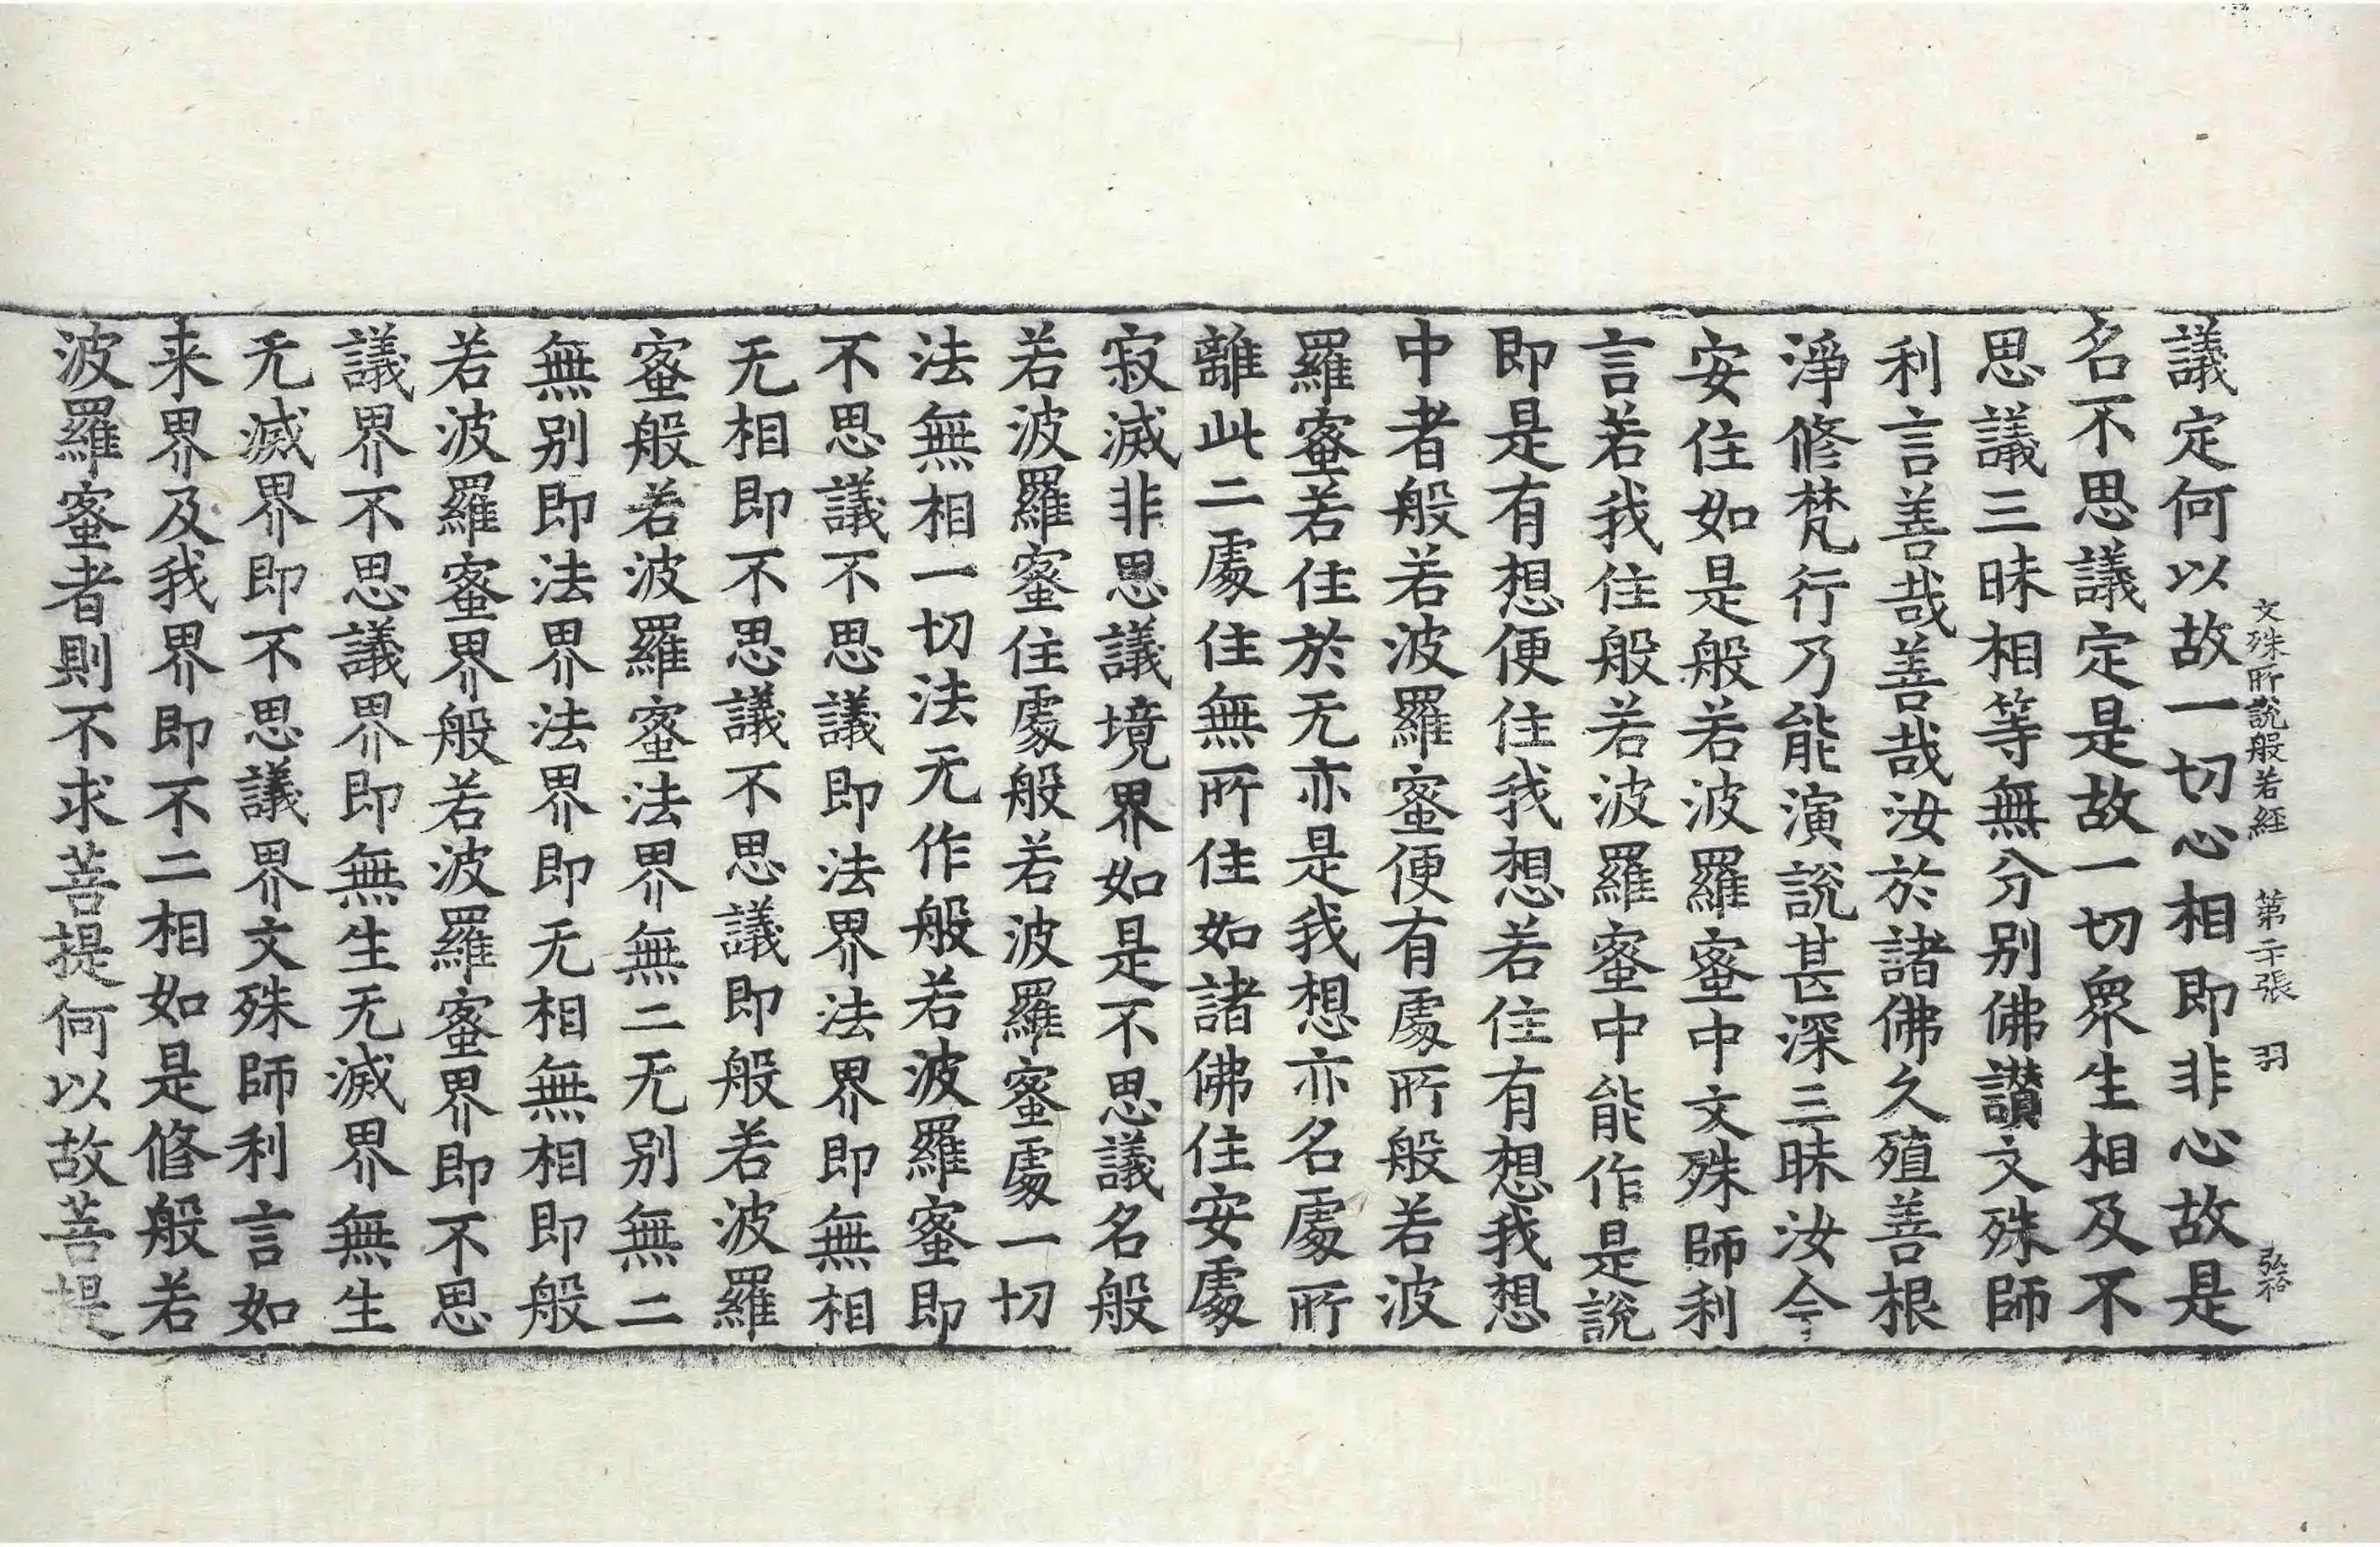 文殊所說般若經　第二十張　羽　弘裕
議定何以故一切心相即非心故是
名不思議定是故一切衆生相及不
思議三昧相等無分别佛讃文殊師
利言善哉善哉汝於諸佛久殖善根
淨修梵行乃能演說甚深三昧汝今
安住如是般若波羅蜜中文殊師利
言若我住般若波羅蜜中能作是說
即是有想便住我想若住有想我想
中者般若波羅蜜便有處所般若波
羅蜜若住於无亦是我想亦名處所
離此二處住無所住如諸佛住安處
寂滅非思議境界如是不思議名般
若波羅蜜住處般若波羅蜜處一切
法無相一切法无作般若波羅蜜即
不思議不思議即法界法界即無相
无相即不思議不思議即般若波羅
蜜般若波羅蜜法界無二无别無二
無别即法界法界即无相無相即般
若波羅蜜界般若波羅蜜界即不思
議界不思議界即無生无滅界無生
无滅界即不思議界文殊師利言如
来界及我界即不二相如是修般若
波羅蜜者則不求菩提何以故菩提